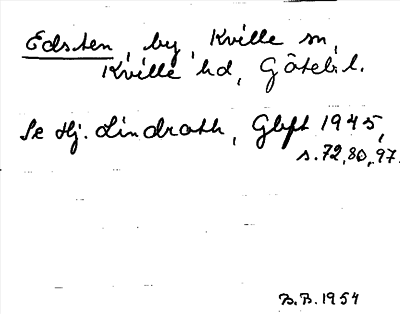 Edsten, by, Kville sn,
Kville hd, Göteb. l.
Se Hj. Lindroth, Gbft 1945,
s. 72, 80, 97.
B.B. 1954